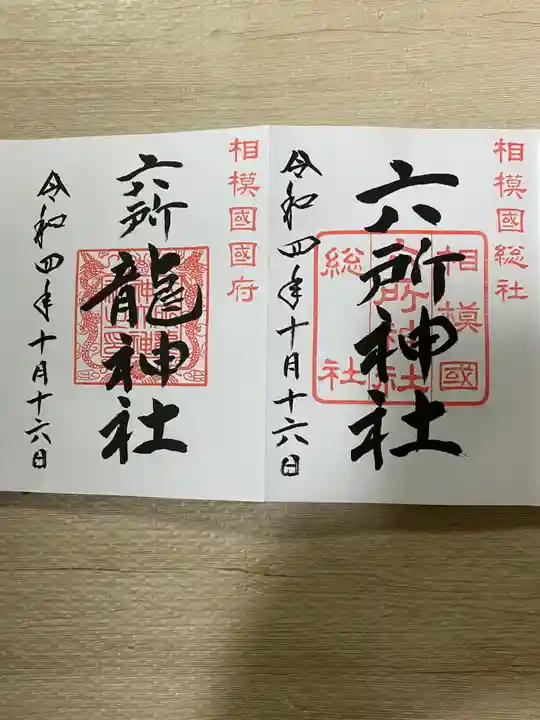 相模國総社
六所神社
相模國
六所神社
総社
令和四年十月十六日
相模國国府
六所
龍神社
令和四年十月十六日